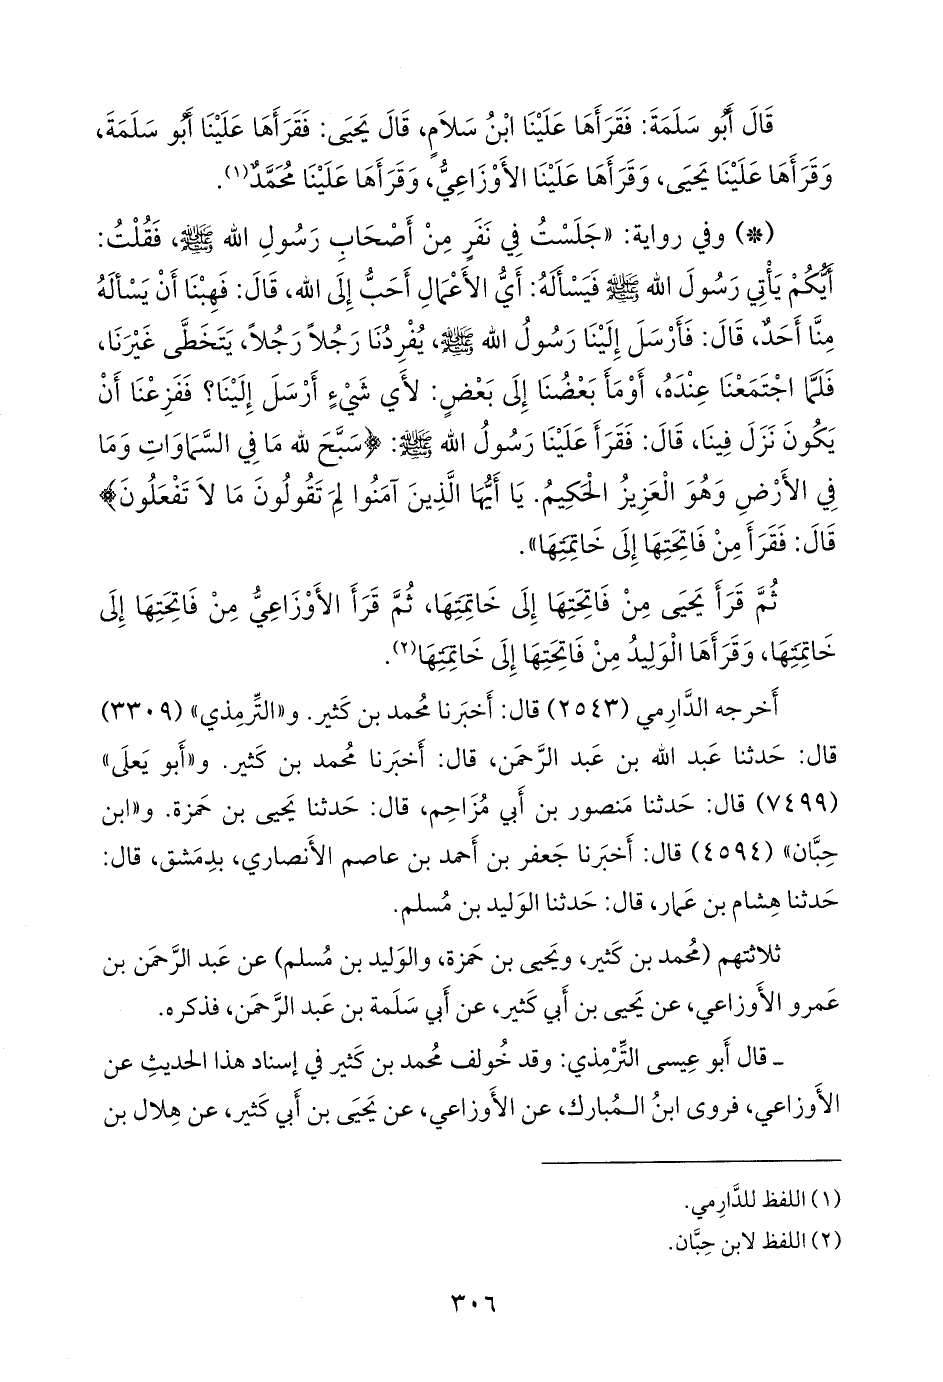 قَالَ أَبُو سَلَمَةَ: فَقَرَأَهَا عَلَيْنَا ابْنُ سَلاَمٍ، قَالَ يَحْيَى: فَقَرَأَهَا عَلَيْنَا أَبُو سَلَمَةَ،
وَقَرَأَهَا عَلَيْنَا يَحْيَى، وَقَرَأَهَا عَلَيْنَا الأَوْزَاعِيُّ، وَقَرَأَهَا عَلَيْنَا مُحَمَّدٌ(١).
(*) وفي رواية: «جَلَسْتُ فِي نَفَرٍ مِنْ أَصْحَابِ رَسُولِ الله ﷺ، فَقُلْتُ:
أَيُّكُمْ يَأْتِي رَسُولَ الله ﷺ فَيَسْأَلَهُ: أَيُّ الأَعْمَالِ أَحَبُّ إِلَى الله، قَالَ: فَهِبْنَا أَنْ يَسْأَلَهُ
مِنَّا أَحَدٌ، قَالَ: فَأَرْسَلَ إِلَيْنَا رَسُولُ الله ﷺ، يُفْرِدُنَا رَجُلاً رَجُلاً، يَتَخَطَّى غَيْرَنَا،
فَلَمَّا اجْتَمَعْنَا عِنْدَهُ، أَوْمَأَ بَعْضُنَا إِلَى بَعْضٍ: لأَي شَيْءٍ أَرْسَلَ إِلَيْنَا؟ فَفَزِعْنَا أَنْ
يَكُونَ نَزَلَ فِينَا، قَالَ: فَقَرَأَ عَلَيْنَا رَسُولُ الله ﷺ: ﴿سَبَّحَ لله مَا فِي السَّمَاوَاتِ وَمَا
فِي الأَرْضِ وَهُوَ الْعَزِيزُ الْحَكِيمُ. يَا أَيُّهَا الَّذِينَ آمَنُوا لِمَ تَقُولُونَ مَا لاَ تَفْعَلُونَ﴾
قَالَ: فَقَرَأَ مِنْ فَاتِحَتِهَا إِلَى خَاتِمَتِهَا».
ثُمَّ قَرَأَ يَحْيَى مِنْ فَاتِحَتِهَا إِلَى خَاتِمَتِهَا، ثُمَّ قَرَأَ الأَوْزَاعِيُّ مِنْ فَاتِحَتِهَا إِلَى
خَاتِمَتِهَا، وَقَرَأَهَا الْوَلِيدُ مِنْ فَاتِحَتِهَا إِلَى خَاتِمَتِهَا(٢).
أَخرجه الدَّارِمي (٢٥٤٣) قال: أَخبَرنا مُحمد بن كَثير. و«التِّرمِذي» (٣٣٠٩)
قال: حَدثنا عَبد الله بن عَبد الرَّحمَن، قال: أَخبَرنا مُحمد بن كَثير. و«أَبو يَعلَى»
(٧٤٩٩) قال: حَدثنا مَنصور بن أَبي مُزَاحِم، قال: حَدثنا يَحيى بن حَمزة. و«ابن
حِبَّان» (٤٥٩٤) قال: أَخبَرنا جَعفر بن أَحمد بن عاصم الأَنصاري، بدِمَشق، قال:
حَدثنا هِشام بن عَمار، قال: حَدثنا الوَليد بن مُسلم.
ثلاثتهم (مُحمد بن كَثير، ويَحيى بن حَمزة، والوَليد بن مُسلم) عن عَبد الرَّحمَن بن
عَمرو الأَوزاعي، عن يَحيى بن أَبي كَثير، عن أَبي سَلَمة بن عَبد الرَّحمَن، فذكره.
ـ قال أَبو عِيسى التِّرْمِذي: وقد خُولف مُحمد بن كَثير في إِسناد هذا الحَديثِ عن
الأَوزاعي، فروى ابنُ الـمُبارك، عن الأَوزاعي، عن يَحيَى بن أَبي كَثير، عن هِلال بن
(١) اللفظ للدَّارِمي.
(٢) اللفظ لابن حِبَّان.
٣٠٦